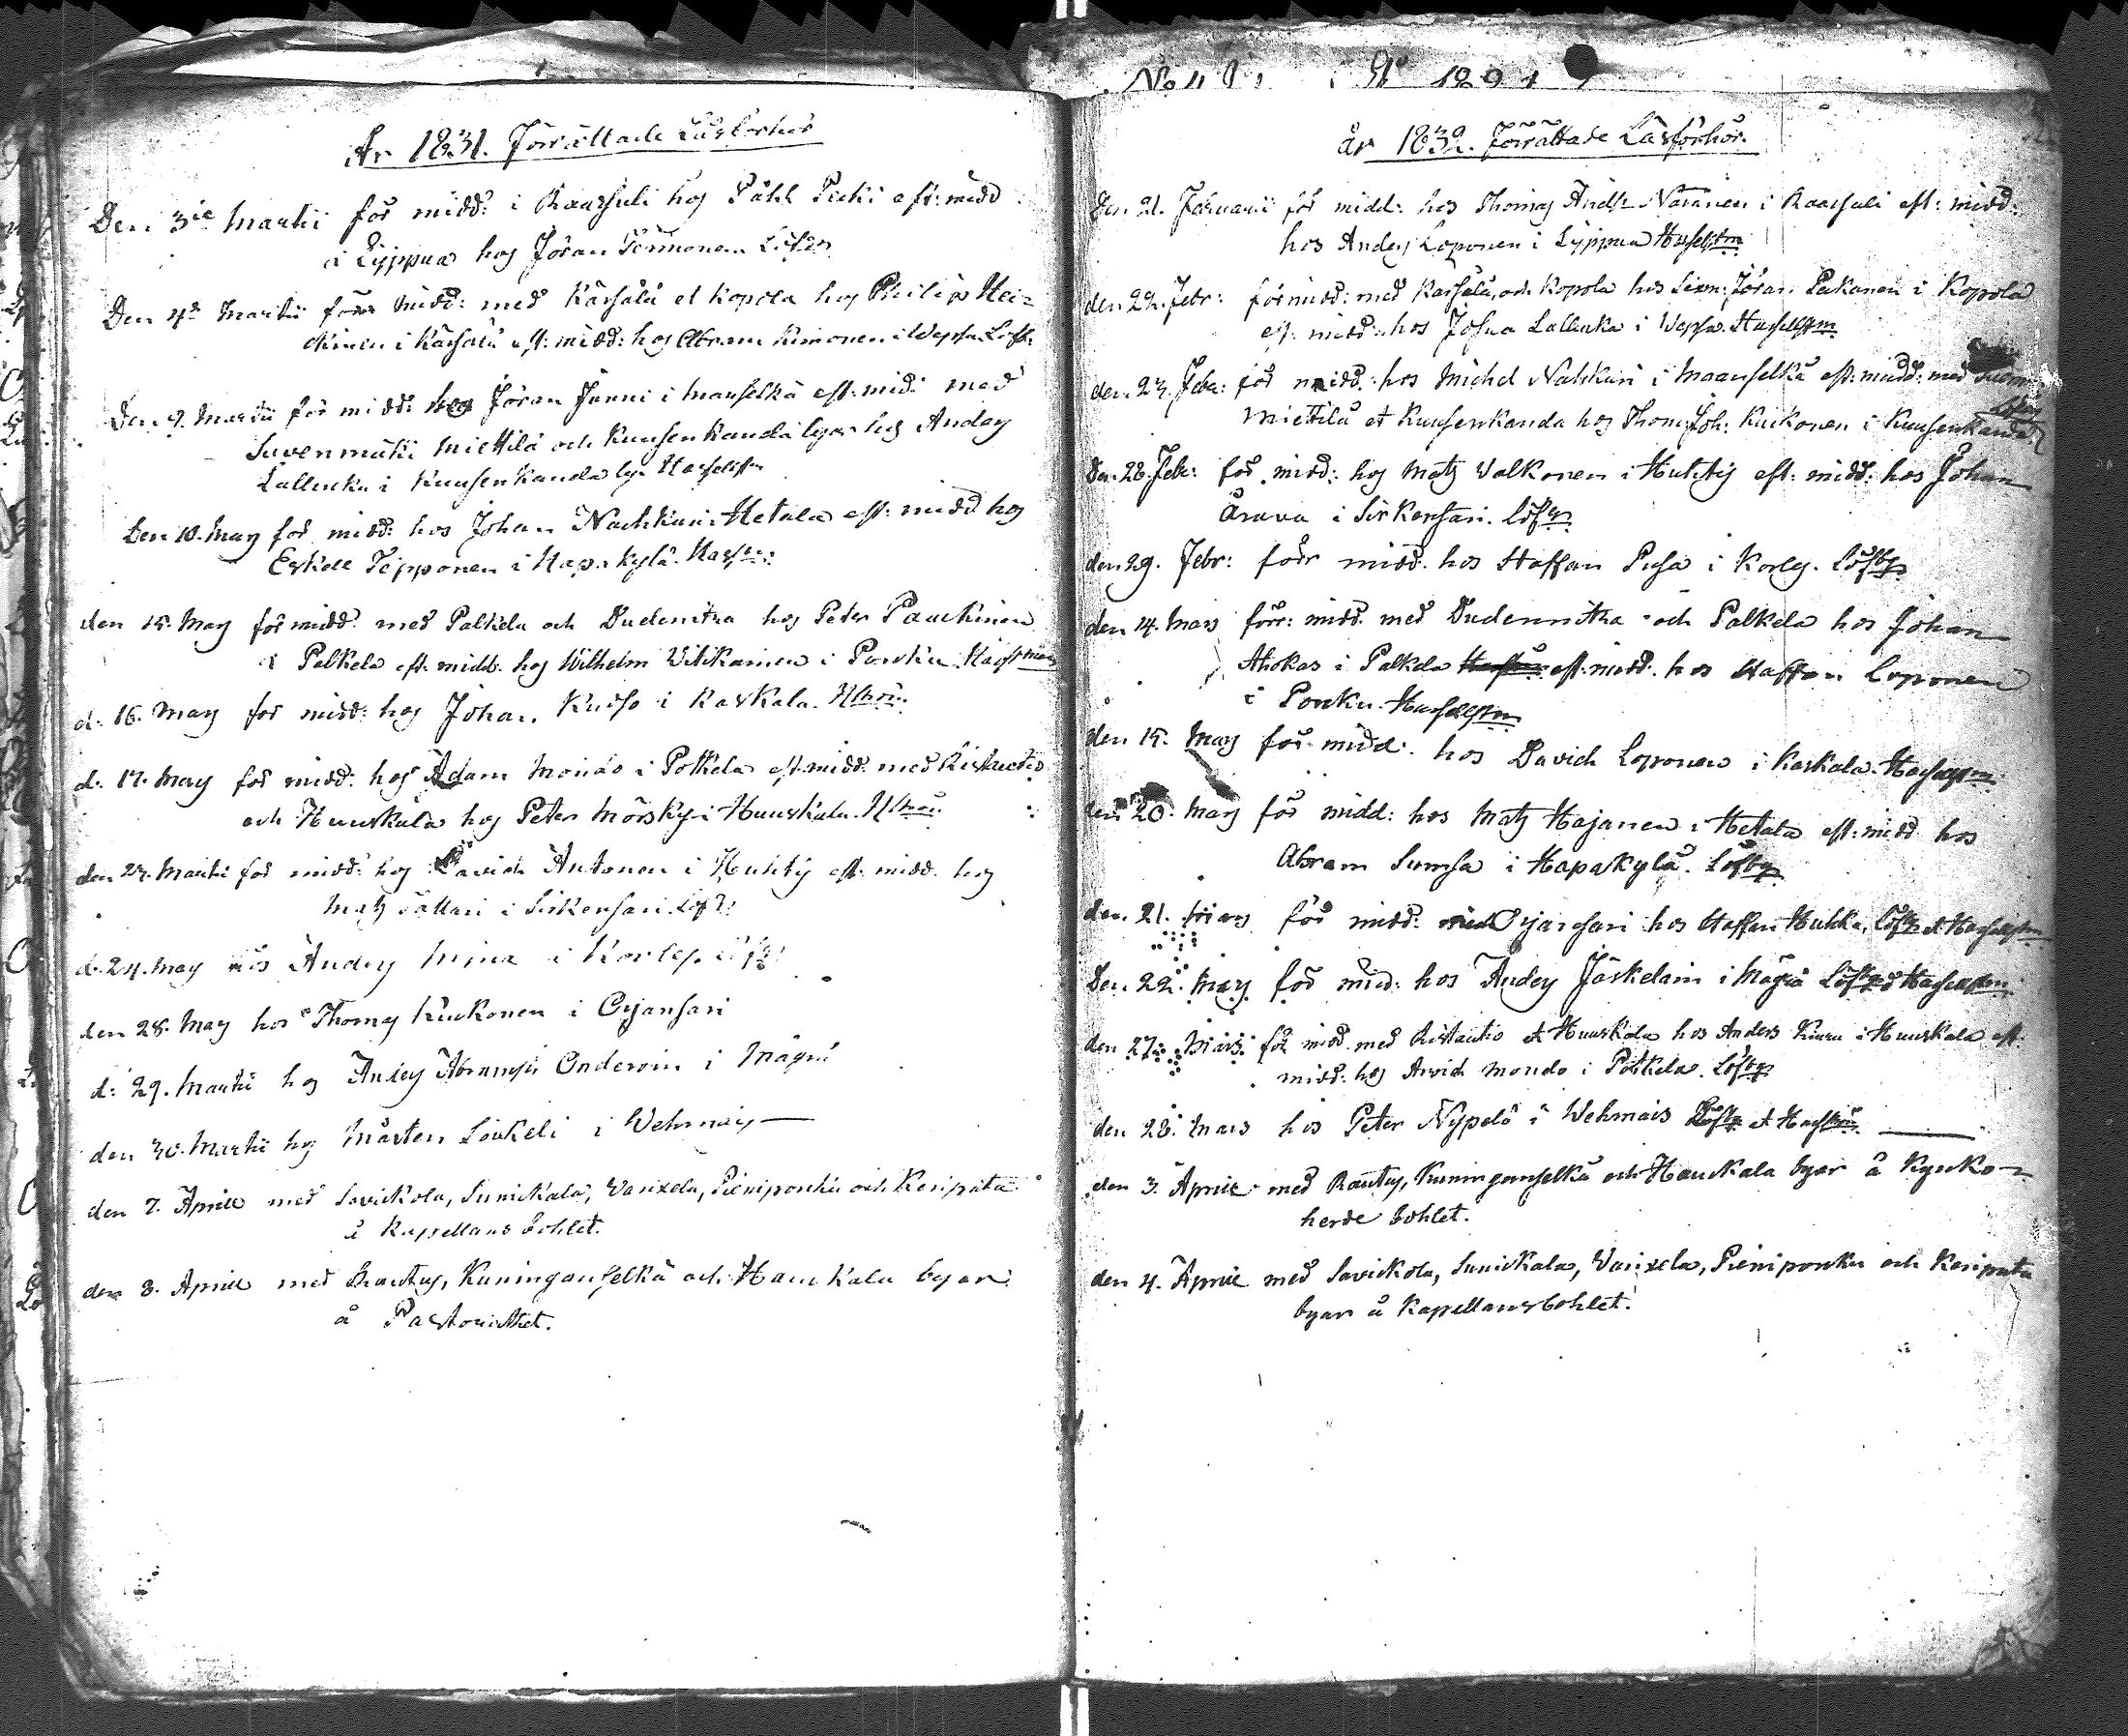 År 1831. Förrättade Läsförhör
Den 3ie Martii för midd: i Raasuli hos Påhl Picki eft: midd
i Lyppua hos Jöran Termonen Löfbg
Den 4de Martii före midd: med Kärsälä et Kopola hos Philip Hei-
kinen i Kärsälä eft: midd: hos Abram Kimonen i Wepsa Löfb.
Den 9. Martii för midd: hos Jöran Junni i Manselkä eft: mid: med
Suvenmäki Miettilä och Kuusenkanda byar hos Anders
Lallucka i Kuusenkanda by
Den 10. Mars för midd: hos Johan Nachkuri Hetala eft: midd hos
Eskell Tepponen i Hapakylä.
den 15. Mars för midd: med Palkela och Dudenitka hos Peter Pauckinen
i Palkela eft: midd: hos Wilhelm Wihkainen i Porcku
d: 16. Mars för midd: hos Johan Kudsa i Raskala.
d: 17. Mars för midd: hos Adam Monås i Potkela eft: midd: med Ristautio
och Huuskala hos Peter Mörsky i Huuskala.
den 23. Martii för midd: hos David Antonen i Huhtj eft: midd. hos
Mats Sattari i Sirkensari Löfbg
d. 24. Mars hos Anders Mina i Korley. Löfbg
den 28. Mars hos Thomas Kuckonen i Orjansari
d: 29. Martii hos Anders Abramss: Onderoin i Mägrä
den 30. Martii hos Mårten Loukeli i Wehmais —
den 7. April med Savickola, Sunickala, Vanxela, Pieniporcku och Keripata
å Kapellans bohlet.
den 8. April med Rautus, Kuninganselkä och Hauckala byar
å Pastorathet.
år 1832. Förrättade Läsförhör.
Den 21. Februarii för midd: hos Thomas Andss Naranen i Raasuli eft: midd:
hos Anders Loponen i Lyppua
den 22. Febr: för midd: med Kärsälä, och Kopola hos Sexm: Jöran Pakanen i Kopola
eft: midd: hos Josua Lallucka i Wepsa.
den 23. Febr: för midd: hos Michel Nahkuri i Maanselkä eft: midd: med
Miettilä et Kuusenkanda hos Thom: Joh: Kuckonen i Kuusenkanda Löfbg
Den 28. Febr: för midd: hos Mats Valkonen i Huhtij eft: midd: hos Johan
Ärava i Sirkensari. Löfbg
den 29. Febr: förr midd. hos Staffan Pusa i Korley. Löfbg
den 14. Mars förr: midd. med Dudennitka och Palkela hos Johan
Ahokas i Palkela eft: midd. hos Staffan Loponen
i Porcku.
den 15. Mars för midd: hos David Loponen i Raskala.
den 20. Mars för midd: hos Mats Hajanen i Hetala eft: midd hos
Abram Sumsa i Hapakylä. Löfbg
den 21. Mars för midd: med Orjansari hos Staffan Hukka, Löfbg et
Den 22. Mars för midd: hos Anders Jäskelain i Mägrä Löfbg
den 27. Mars för midd. med Ristautio et Huuskala hos Anders Kiuru i Huuskala eft:
midd: hos Arvid Mondo i Potkela. Löfbg
den 28. Mars hos Peter Nypelö i Wehmais Löfbg et
den 3. April med Rautus, Kuninganselkä och Hauckala byar å Kyrcko-
herde bohlet.
den 4. April med Savickola, Sunickala, Vanxela, Pieniporcku och Keripata
byar å Kapellansbohlet.